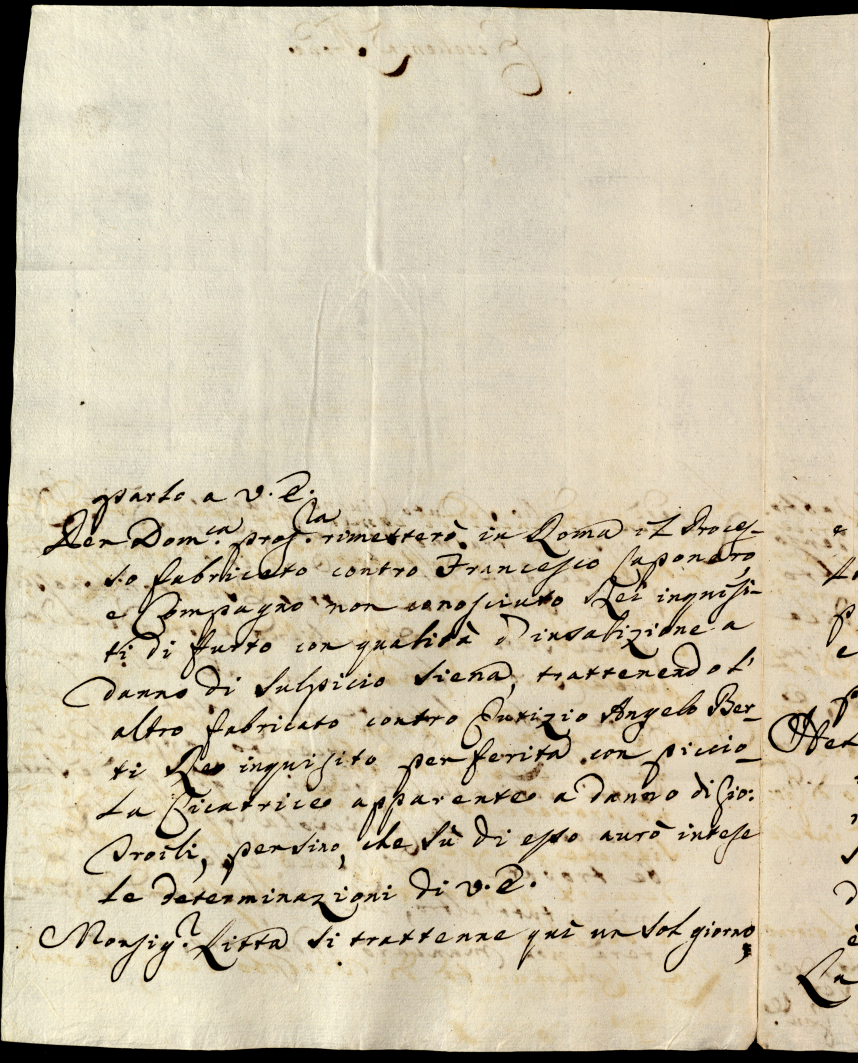 parto a V. E.
Per Dom.ca pross.la rimetterò in Roma il Proces-
so fabricato contro Francesco Saponaro,
e Compagno non conosciuto Rei inquisi-
ti di furto con qualità d'insalizione a
danno di Sulpicio Siena, trattenendo l'
altro fabricato contro Cutizio Angelo Ber-
ti Reo inquisito per ferita con piccio-
la Cicatrice apparente a danno di Gio:
Troili, persino, che sù di esso aurò intese
le determinazioni di V. E.
Monsig.r Litta si trattenne quì un sol giorno,